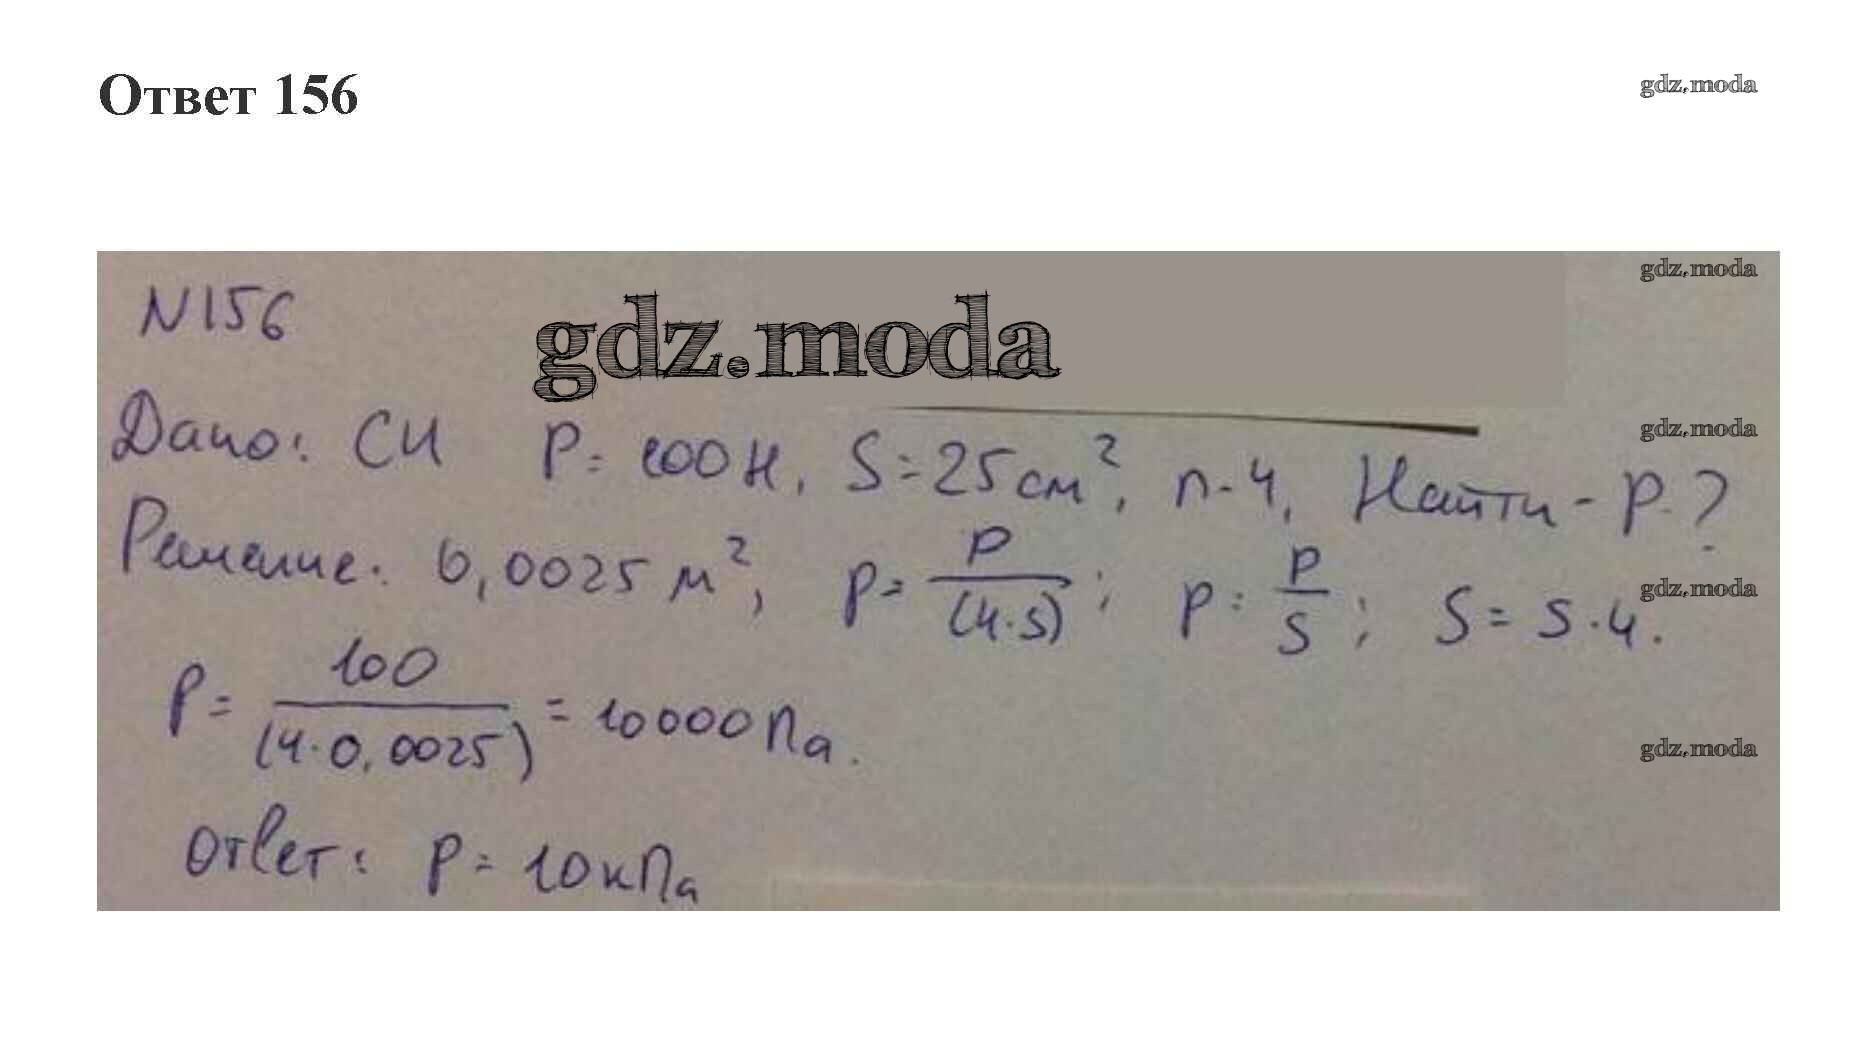 Ответ 156
gdz.moda
gdz.moda
N156
gdz.moda
Дано: СИ P= 100 Н, S=25 см², n-4, Найти - p-?
gdz.moda
Решение: 0,0025 м², p= P/(4·S); p= P/S; S = S·4.
gdz.moda
P= 100/(4·0,0025) = 10000 Па.
gdz.moda
Ответ: p= 10кПа